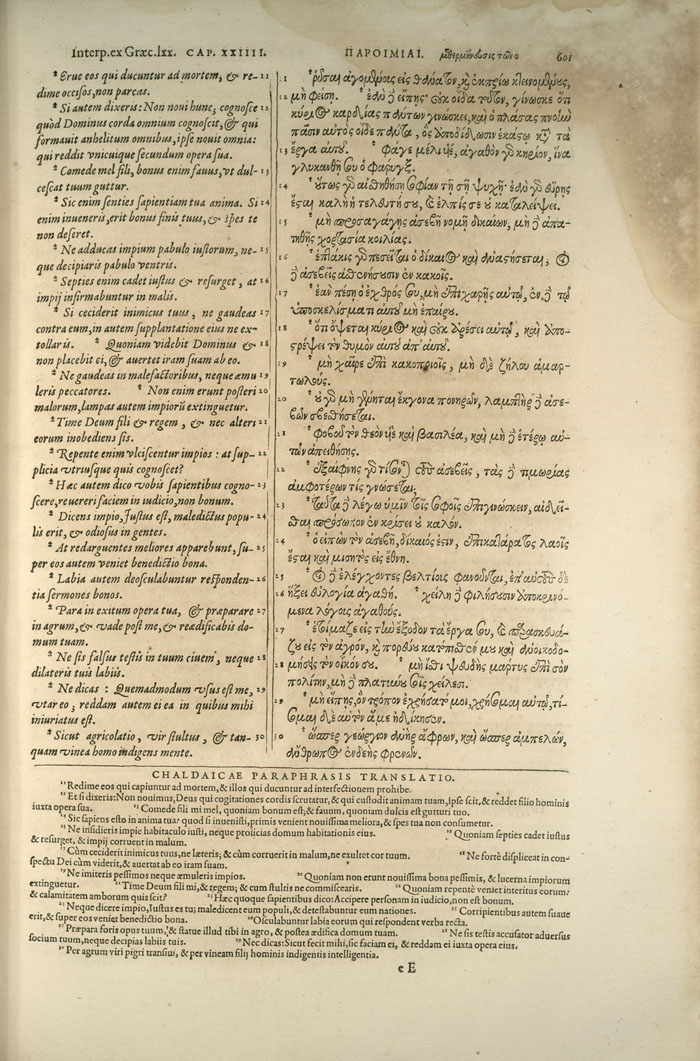 Interp. ex Græc. lxx. CAP. XXIIII.
ΠΑΡΟΙΜΙΑΙ.
601
* Erue eos qui ducuntur ad mortem, & re- 11
dime occisos, non parcas.
* Si autem dixeris: Non noui hunc; cognosce 12
quòd Dominus corda omnium cognoscit, & qui
formauit anhelitum omnibus, ipse nouit omnia:
qui reddit vnicuique secundum opera sua.
* Comede mel fili, bonus enim fauus, vt dul- 13
cescat tuum guttur.
* Sic enim senties sapientiam tua anima. Si 14
enim inueneris, erit bonus finis tuus, & spes te
non deseret.
* Ne adducas impium pabulo iustorum, ne- 15
que decipiaris pabulo ventris.
* Septies enim cadet iustus & resurget, at 16
impij infirmabuntur in malis.
* Si ceciderit inimicus tuus, ne gaudeas 17
contra eum, in autem supplantatione eius ne ex-
tollaris. * Quoniam videbit Dominus & 18
non placebit ei, & auertet iram suam ab eo.
* Ne gaudeas in malefactoribus, neque æmu 19
leris peccatores. * Non enim erunt posteri 20
malorum, lampas autem impiorū extinguetur.
* Time Deum fili & regem, & nec alteri 21
eorum inobediens sis.
* Repente enim vlciscentur impios: at sup- 22
plicia vtriusque quis cognoscet?
* Hæc autem dico vobis sapientibus cogno- 23
scere, reuereri faciem in iudicio, non bonum.
* Dicens impio, Iustus est, maledictus popu- 24
lis erit, & odiosus in gentes.
* At redarguentes meliores apparebunt, su- 25
per eos autem veniet benedictio bona.
* Labia autem deosculabuntur responden- 26
tia sermones bonos.
* Para in exitum opera tua, & præparare 27
in agrum, & vade post me, & reædificabis do-
mum tuam.
* Ne sis falsus testis in tuum ciuem, neque 28
dilateris tuis labiis.
* Ne dicas: Quemadmodum vsus est me, 29
vtar eo; reddam autem ei ea in quibus mihi
iniuriatus est.
* Sicut agricolatio, vir stultus, & tan- 30
quam vinea homo indigens mente.
11 ῥῦσαι ἀγομένους εἰς θάνατον, καὶ ἐκπρίου κτεινομένους,
12 μὴ φείσῃ. * ἐὰν δὲ εἴπῃς· οὐκ οἶδα τοῦτον, γίνωσκε ὅτι
κύριος καρδίας πάντων γινώσκει, καὶ ὁ πλάσας πνοὴν
πᾶσιν αὐτὸς οἶδε πάντα, ὃς ἀποδίδωσιν ἑκάστῳ κατὰ τὰ
13 ἔργα αὐτοῦ. * φάγε μέλι υἱὲ, ἀγαθὸν γὰρ κηρίον, ἵνα
γλυκανθῇ σου ὁ φάρυγξ.
14 * οὕτως γὰρ αἰσθήσῃ σοφίαν τῇ σῇ ψυχῇ· ἐὰν γὰρ εὕρῃς
ἔσται καλὴ ἡ τελευτή σου, καὶ ἐλπίς σε οὐ καταλείψει.
15 * μὴ προσαγάγῃς ἀσεβῆ νομῇ δικαίων, μὴ δὲ ἀπα-
τηθῇς χορτασίᾳ κοιλίας.
16 * ἑπτάκις γὰρ πεσεῖται ὁ δίκαιος καὶ ἀναστήσεται, οἱ
δὲ ἀσεβεῖς ἀσθενήσουσιν ἐν κακοῖς.
17 * ἐὰν πέσῃ ὁ ἐχθρός σου, μὴ ἐπιχαρῇς αὐτῷ, ἐν δὲ τῷ
ὑποσκελίσματι αὐτοῦ μὴ ἐπαίρου.
18 * ὅτι ὄψεται κύριος καὶ οὐκ ἀρέσει αὐτῷ, καὶ ἀπο-
στρέψει τὸν θυμὸν αὐτοῦ ἀπ' αὐτοῦ.
19 * μὴ χαῖρε ἐπὶ κακοποιοῖς, μὴ δὲ ζήλου ἁμαρ-
τωλούς.
20 * οὐ γὰρ μὴ γένηται ἔκγονα πονηρῶν, λαμπτὴρ δὲ ἀσε-
βῶν σβεσθήσεται.
21 * φοβοῦ τὸν θεὸν υἱὲ καὶ βασιλέα, καὶ μὴ δὲ ἑτέρῳ αὐ-
τῶν ἀπειθήσῃς.
22 * ἐξαίφνης γὰρ τίσονται τοὺς ἀσεβεῖς, τὰς δὲ τιμωρίας
ἀμφοτέρων τίς γνώσεται;
23 * ταῦτα δὲ λέγω ὑμῖν τοῖς σοφοῖς ἐπιγινώσκειν, αἰδεῖ-
σθαι πρόσωπον ἐν κρίσει οὐ καλόν.
24 * ὁ εἰπὼν τὸν ἀσεβῆ, δίκαιός ἐστιν, ἐπικατάρατος λαοῖς
ἔσται καὶ μισητὸς εἰς ἔθνη.
25 * οἱ δὲ ἐλέγχοντες βελτίους φανοῦνται, ἐπ' αὐτοὺς δὲ
26 ἥξει εὐλογία ἀγαθή. * χείλη δὲ φιλήσουσιν ἀποκρινό-
μενα λόγοις ἀγαθούς.
27 * ἑτοίμαζε εἰς τὴν ἔξοδον τὰ ἔργα σου, καὶ παρασκευά-
ζου εἰς τὸν ἀγρὸν, καὶ πορεύου κατόπισθέν μου καὶ ἀνοικοδο-
28 μήσεις τὸν οἶκόν σου. * μὴ ἴσθι ψευδὴς μάρτυς ἐπὶ σὸν
πολίτην, μὴ δὲ πλατύνου σοῖς χείλεσι.
29 * μὴ εἴπῃς, ὃν τρόπον ἐχρήσατό μοι, χρήσομαι αὐτῷ, τί-
σομαι δὲ αὐτὸν ἅ με ἠδίκησεν.
30 * ὥσπερ γεώργιον ἀνὴρ ἄφρων, καὶ ὥσπερ ἀμπελών,
ἄνθρωπος ἐνδεὴς φρενῶν.
CHALDAICAE PARAPHRASIS TRANSLATIO.
11 Redime eos qui capiuntur ad mortem, & illos qui ducuntur ad interfectionem prohibe.
12 Et si dixeris: Non nouimus, Deus qui cogitationes cordis scrutatur, & qui custodit animam tuam, ipse scit, & reddet filio hominis
iuxta opera sua. 13 Comede fili mi mel, quoniam bonum est; & fauum, quoniam dulcis est gutturi tuo.
14 Sic sapiens esto in anima tua: quod si inuenisti, primis venient nouissima meliora, & spes tua non consumetur.
15 Ne insidieris impie habitaculo iusti, neque proiicias domum habitationis eius. 16 Quoniam septies cadet iustus
& resurget, & impij corruent in malum.
17 Cùm ceciderit inimicus tuus, ne læteris; & cùm corruerit in malum, ne exultet cor tuum. 18 Ne fortè displiceat in con-
spectu Dei cùm viderit, & auertat ab eo iram suam.
19 Ne imiteris pessimos neque æmuleris impios. 20 Quoniam non erunt nouissima bona pessimis, & lucerna impiorum
extinguetur. 21 Time Deum fili mi, & regem; & cum stultis ne commiscearis. 22 Quoniam repentè veniet interitus eorum:
& calamitatem amborum quis scit? 23 Hæc quoque sapientibus dico: Accipere personam in iudicio, non est bonum.
24 Neque dicere impio, Iustus es tu; maledicent eum populi, & detestabuntur eum nationes. 25 Corripientibus autem suaue
erit, & super eos veniet benedictio bona. 26 Osculabuntur labia eorum qui respondent verba recta.
27 Præpara foris opus tuum, & statue illud tibi in agro, & postea ædifica domum tuam. 28 Ne sis testis accusator aduersus
socium tuum, neque decipias labiis tuis. 29 Nec dicas: Sicut fecit mihi, sic faciam ei, & reddam ei iuxta opera eius.
30 Per agrum viri pigri transiui, & per vineam filij hominis indigentis intelligentia.
e E